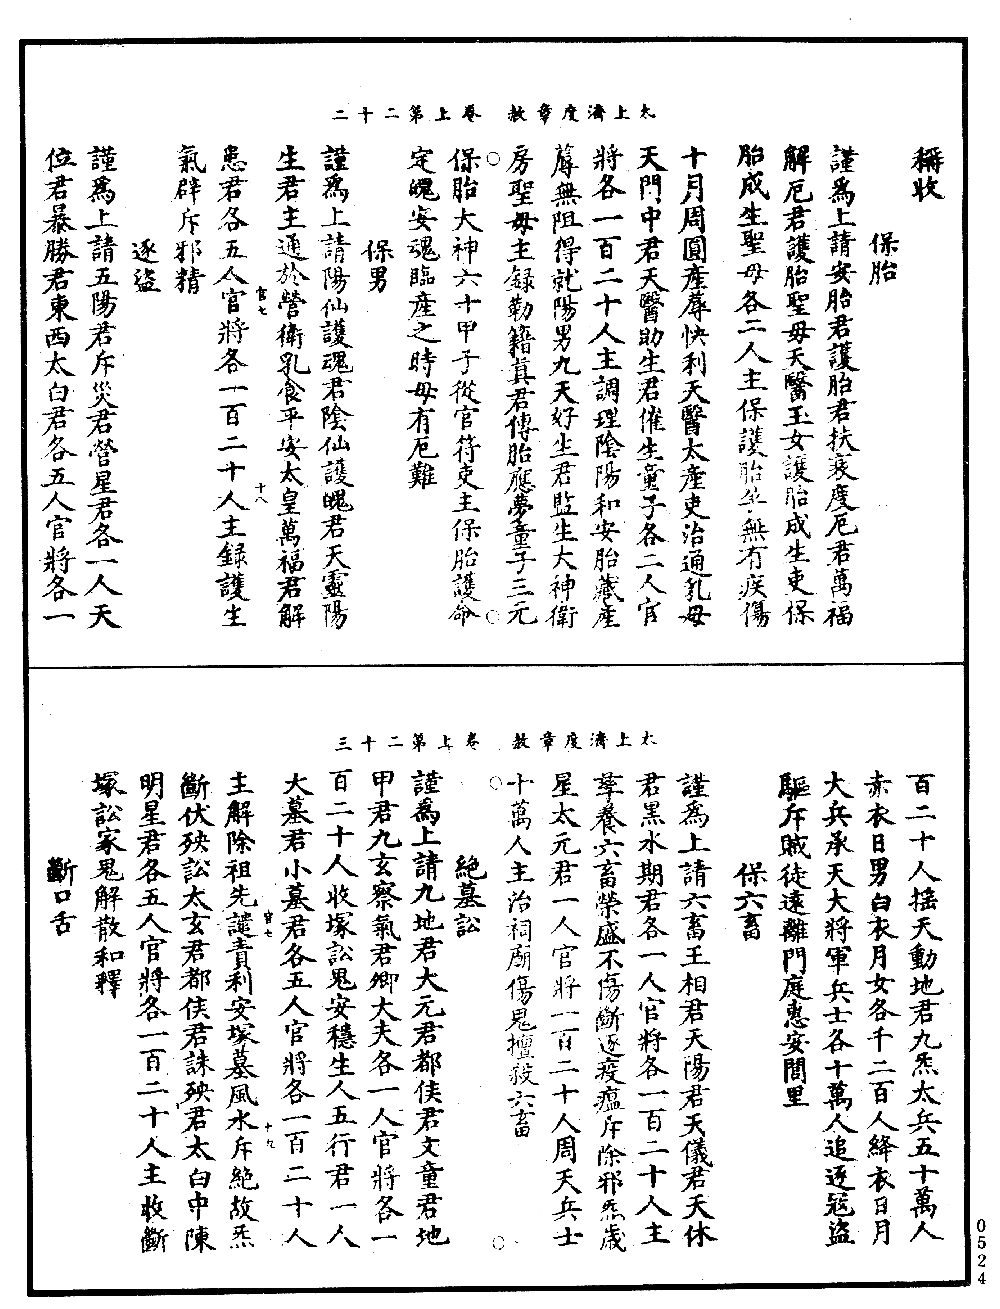 太上濟度章赦　卷上第二十二
稱收
保胎
謹為上請安胎君護胎君扶衰度厄君萬福
解厄君護胎聖母天醫玉女護胎成生吏保
胎成生聖母各二人主保護胎孕無有疾傷
十月周圓產蓐快利天醫太產吏治通乳母
天門中君天醫助生君催生童子各二人官
將各一百二十人主調理陰陽和安胎藏產
蓐無阻得就陽男九天好生君監生大神衛
房聖母主錄勒籍真君傳胎應夢童子三元
保胎大神六十甲子從官符吏主保胎護命
定魄安魂臨產之時母有厄難
保男
謹為上請陽仙護魂君陰仙護魄君天靈陽
生君主通於營衛乳食平安太皇萬福君解
官七　十八
患君各五人官將各一百二十人主錄護生
氣辟斥邪精
逐盜
謹為上請五陽君斥災君營星君各一人天
位君暴勝君東西太白君各五人官將各一
太上濟度章赦　卷上第二十三
百二十人搖天動地君九炁太兵五十萬人
赤衣日男白衣月女各千二百人絳衣日月
大兵承天大將軍兵士各十萬人追逐寇盜
驅斥賊徒遠離門庭惠安閭里
保六畜
謹為上請六畜王相君天陽君天儀君天休
君黑水期君各一人官將各一百二十人主
孳養六畜榮盛不傷斷逐疫瘟斥除邪炁歲
星太元君一人官將一百二十人周天兵士
十萬人主治祠廟傷鬼擅殺六畜
絕墓訟
謹為上請九地君大元君都侯君文童君地
甲君九玄察氣君卿大夫各一人官將各一
百二十人收塚訟鬼安穩生人五行君一人
大墓君小墓君各五人官將各一百二十人
官七　十九
主解除祖先譴責利安塚墓風水斥絕故炁
斷伏殃訟太玄君都侯君誅殃君太白中陳
明星君各五人官將各一百二十人主收斷
塚訟家鬼解散和釋
斷口舌
0524